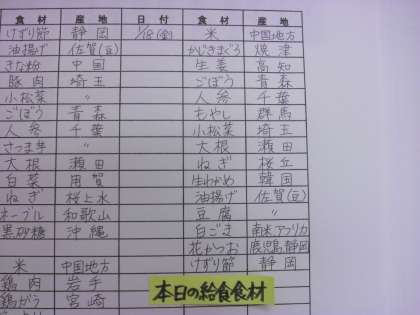 食材 産地 日付 食材 産地
けずり節 静岡 1/18(金) 米 中国地方
油揚げ 佐賀(豆) かじきまぐろ 焼津
きな粉 中国 生姜 高知
豚肉 埼玉 ごぼう 青森
小松菜 〃 人参 千葉
ごぼう 青森 もやし 群馬
人参 千葉 小松菜 埼玉
さつま芋 〃 大根 瀬田
大根 瀬田 ねぎ 桜丘
白菜 用賀 生わかめ 韓国
ねぎ 桜上水 油揚げ 佐賀(豆)
ネーブル 和歌山 豆腐 〃
黒砂糖 沖縄 白ごま 南米アフリカ
花かつお 鹿児島,静岡
米 中国地方 けずり節 静岡
鶏肉 岩手
鶏がら 宮崎
本日の給食食材